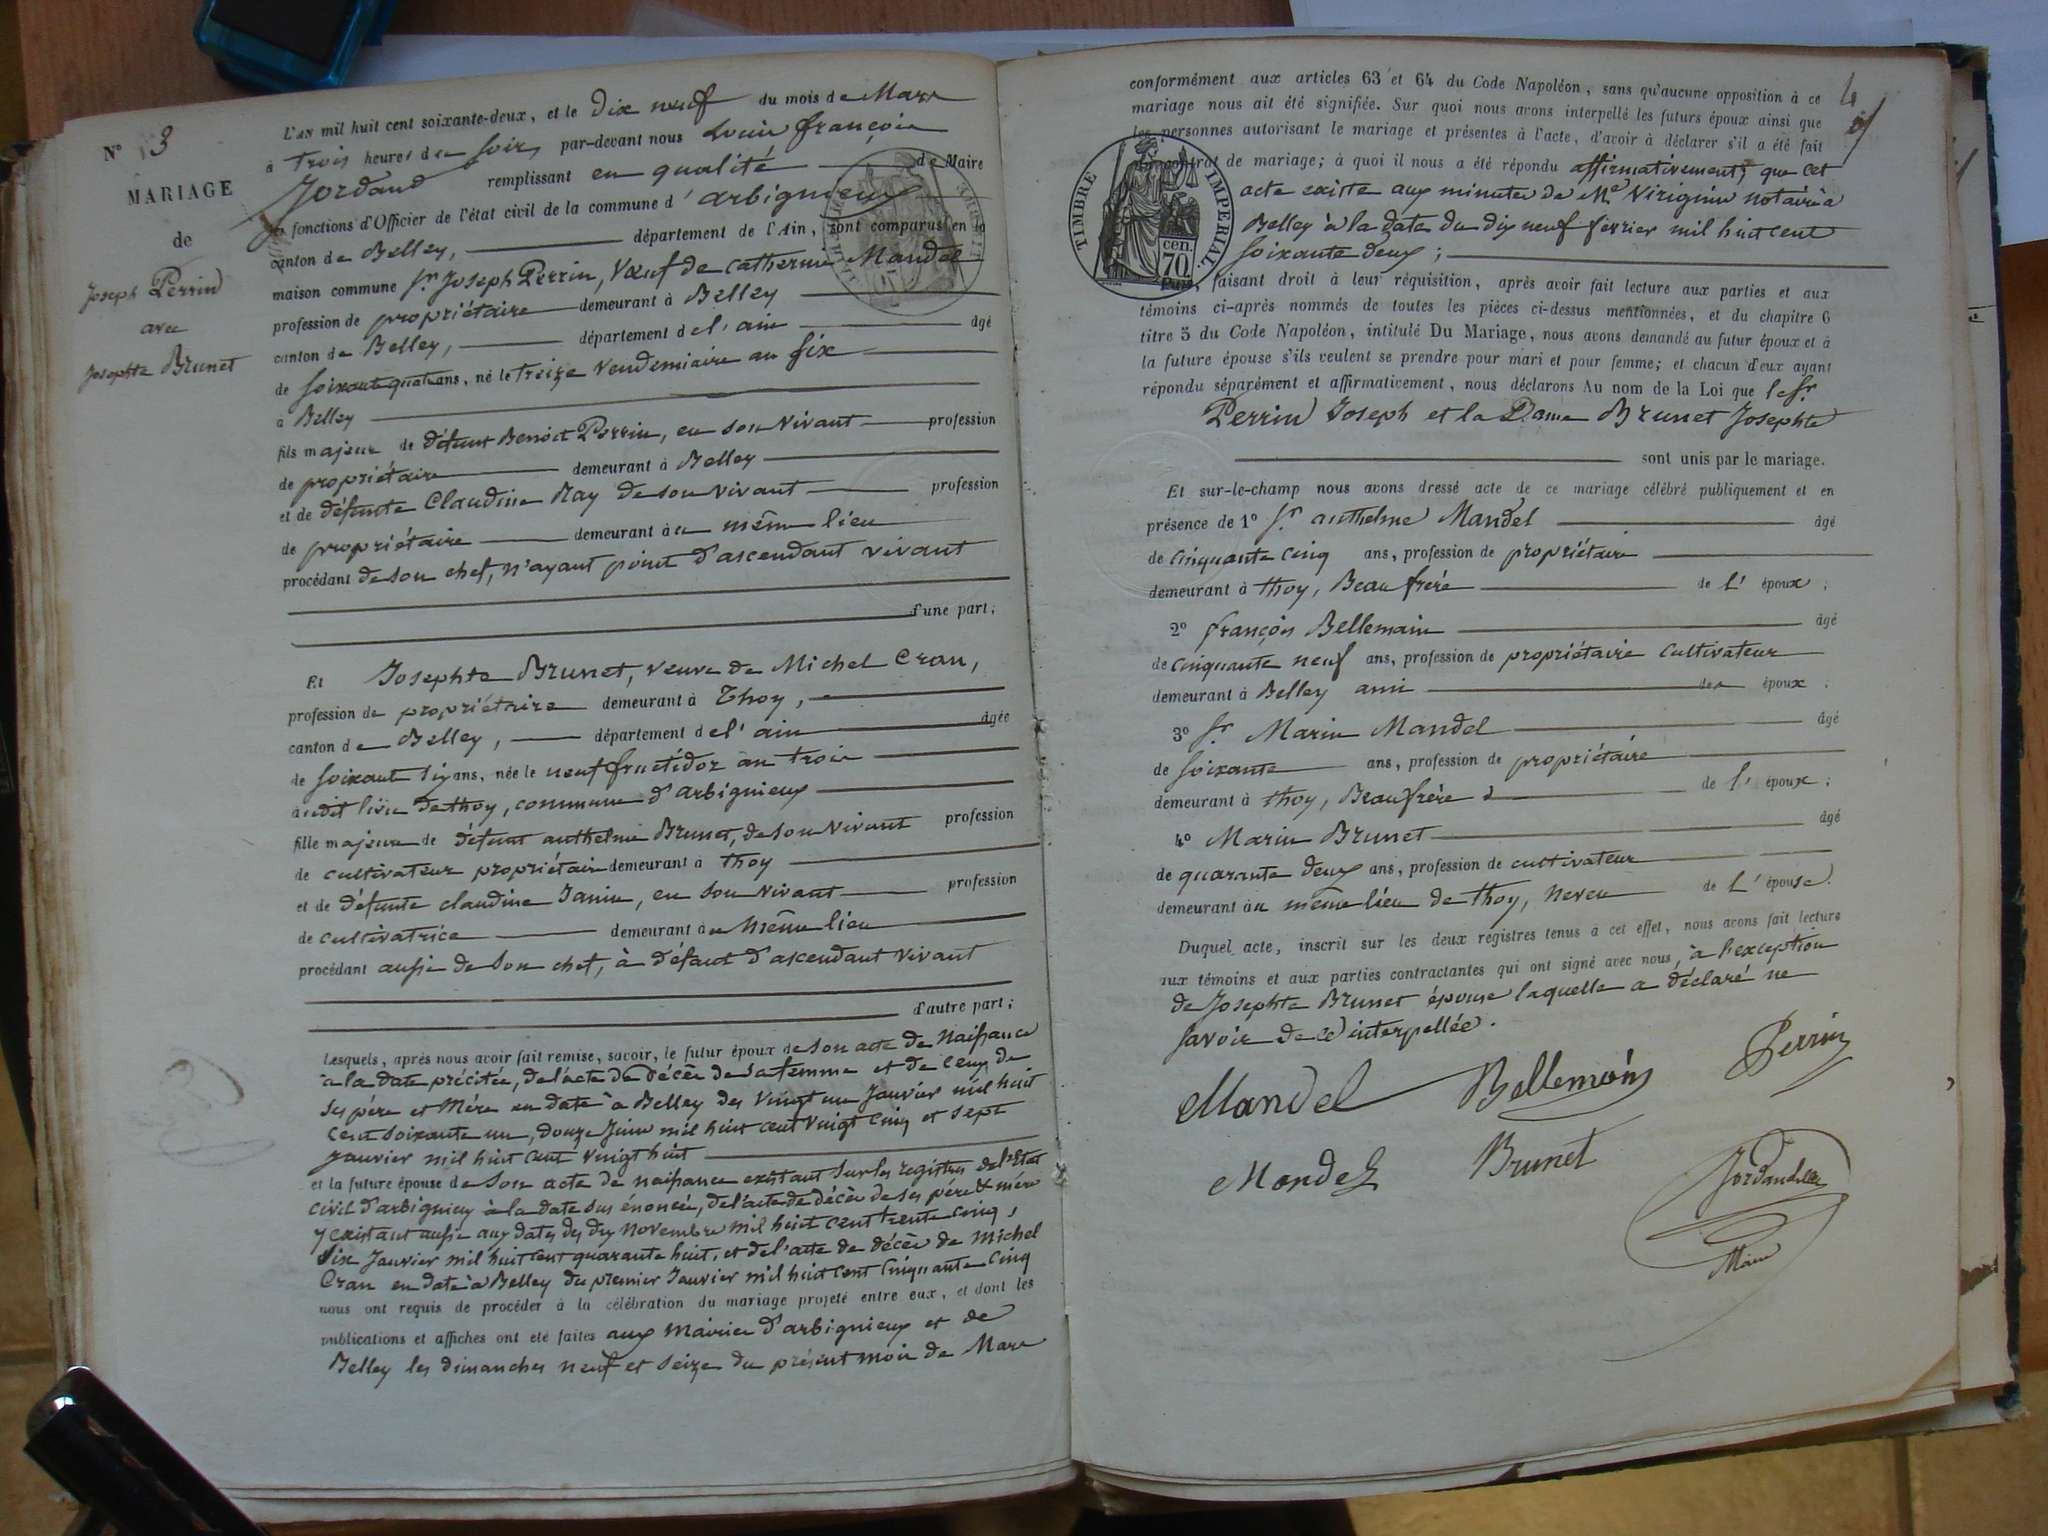 N° 3
MARIAGE
de
Joseph Perrin
avec
Josephte Brunet
L'AN mil huit cent soixante-deux, et le dix neuf du mois de Mars
à trois heures du soir, par-devant nous Louis françois
Jordand remplissant en qualité de Maire
fonctions d'Officier de l'état civil de la commune d'arbignieux
canton de Belley, département de l'Ain, sont comparus en la
maison commune Sr Joseph Perrin, Vœuf de catherine Mandel
profession de propriétaire demeurant à Belley
canton de Belley, département de l'ain âgé
de soixante quatre ans, né le treize Vendemiaire an six
à Belley
fils majeur de défunt Benoit Perrin, en son vivant profession
de propriétaire demeurant à Belley
et de défunte Claudine Ray de son vivant profession
de propriétaire demeurant au même lieu
procédant de son chef, n'ayant point d'ascendant vivant
d'une part;
Et Josephte Brunet, veuve de Michel Cran,
profession de propriétaire demeurant à Thoy,
canton de Belley, département de l'ain âgée
de soixante six ans, née le neuf fructidor an trois
audit lieu de thoy, commune d'arbignieux
fille majeure de défunt anthelme Brunet, de son vivant profession
de cultivateur propriétaire demeurant à thoy
et de défunte claudine Janin, en son vivant profession
de cultivatrice demeurant au même lieu
procédant aussi de son chef, à défaut d'ascendant vivant
d'autre part;
Lesquels, après nous avoir fait remise, savoir, le futur époux de son acte de naissance
à la date précitée, de l'acte de décès de sa femme et de ceux de
ses père et mère en date à Belley des vingt un Janvier mil huit
cent soixante un, douze Juin mil huit cent vingt cinq et sept
janvier mil huit cent vingt huit
et la future épouse de son acte de naissance existant sur les registres de l'Etat
civil d'arbignieux à la date sus énoncée, de l'acte de décès de ses père & mère
y existant aussi aux dates des dix novembre mil huit cent trente cinq,
six Janvier mil huit cent quarante huit, et de l'acte de décès de Michel
Cran en date à Belley du premier Janvier mil huit cent cinquante cinq
nous ont requis de procéder à la célébration du mariage projeté entre eux, et dont les
publications et affiches ont été faites aux Mairies d'arbignieux et de
Belley les dimanches neuf et seize du présent mois de Mars
4
conformément aux articles 63 et 64 du Code Napoléon, sans qu'aucune opposition à ce
mariage nous ait été signifiée. Sur quoi nous avons interpellé les futurs époux ainsi que
les personnes autorisant le mariage et présentes à l'acte, d'avoir à déclarer s'il a été fait
contrat de mariage; à quoi il nous a été répondu affirmativement, que cet
acte existe aux minutes de Me Viriginin notaire à
Belley à la date du dix neuf fevrier mil huit cent
soixante deux;
TIMBRE IMPERIAL
cen.
70
faisant droit à leur réquisition, après avoir fait lecture aux parties et aux
témoins ci-après nommés de toutes les pièces ci-dessus mentionnées, et du chapitre 6
titre 5 du Code Napoléon, intitulé Du Mariage, nous avons demandé au futur époux et à
la future épouse s'ils veulent se prendre pour mari et pour femme; et chacun d'eux ayant
répondu séparément et affirmativement, nous déclarons Au nom de la Loi que le Sr
Perrin Joseph et la Dame Brunet Josephte
sont unis par le mariage.
Et sur-le-champ nous avons dressé acte de ce mariage célébré publiquement et en
présence de 1° Sr anthelme Mandel âgé
de cinquante cinq ans, profession de propriétaire
demeurant à thoy, Beau frère de l'époux;
2° françois Bellemain âgé
de cinquante neuf ans, profession de propriétaire cultivateur
demeurant à Belley ami des époux;
3° Sr Marin Mandel âgé
de soixante ans, profession de propriétaire
demeurant à thoy, Beaufrère de l'époux;
4° Marin Brunet âgé
de quarante deux ans, profession de cultivateur
demeurant au même lieu de thoy, neveu de L'épouse.
Duquel acte, inscrit sur les deux registres tenus à cet effet, nous avons fait lecture
aux témoins et aux parties contractantes qui ont signé avec nous, à l'exception
de Josephte Brunet épouse laquelle a déclaré ne
savoir de ce interpellée.
Mandel Bellemain Perrin
Mandel Brunet Jordand
Maire